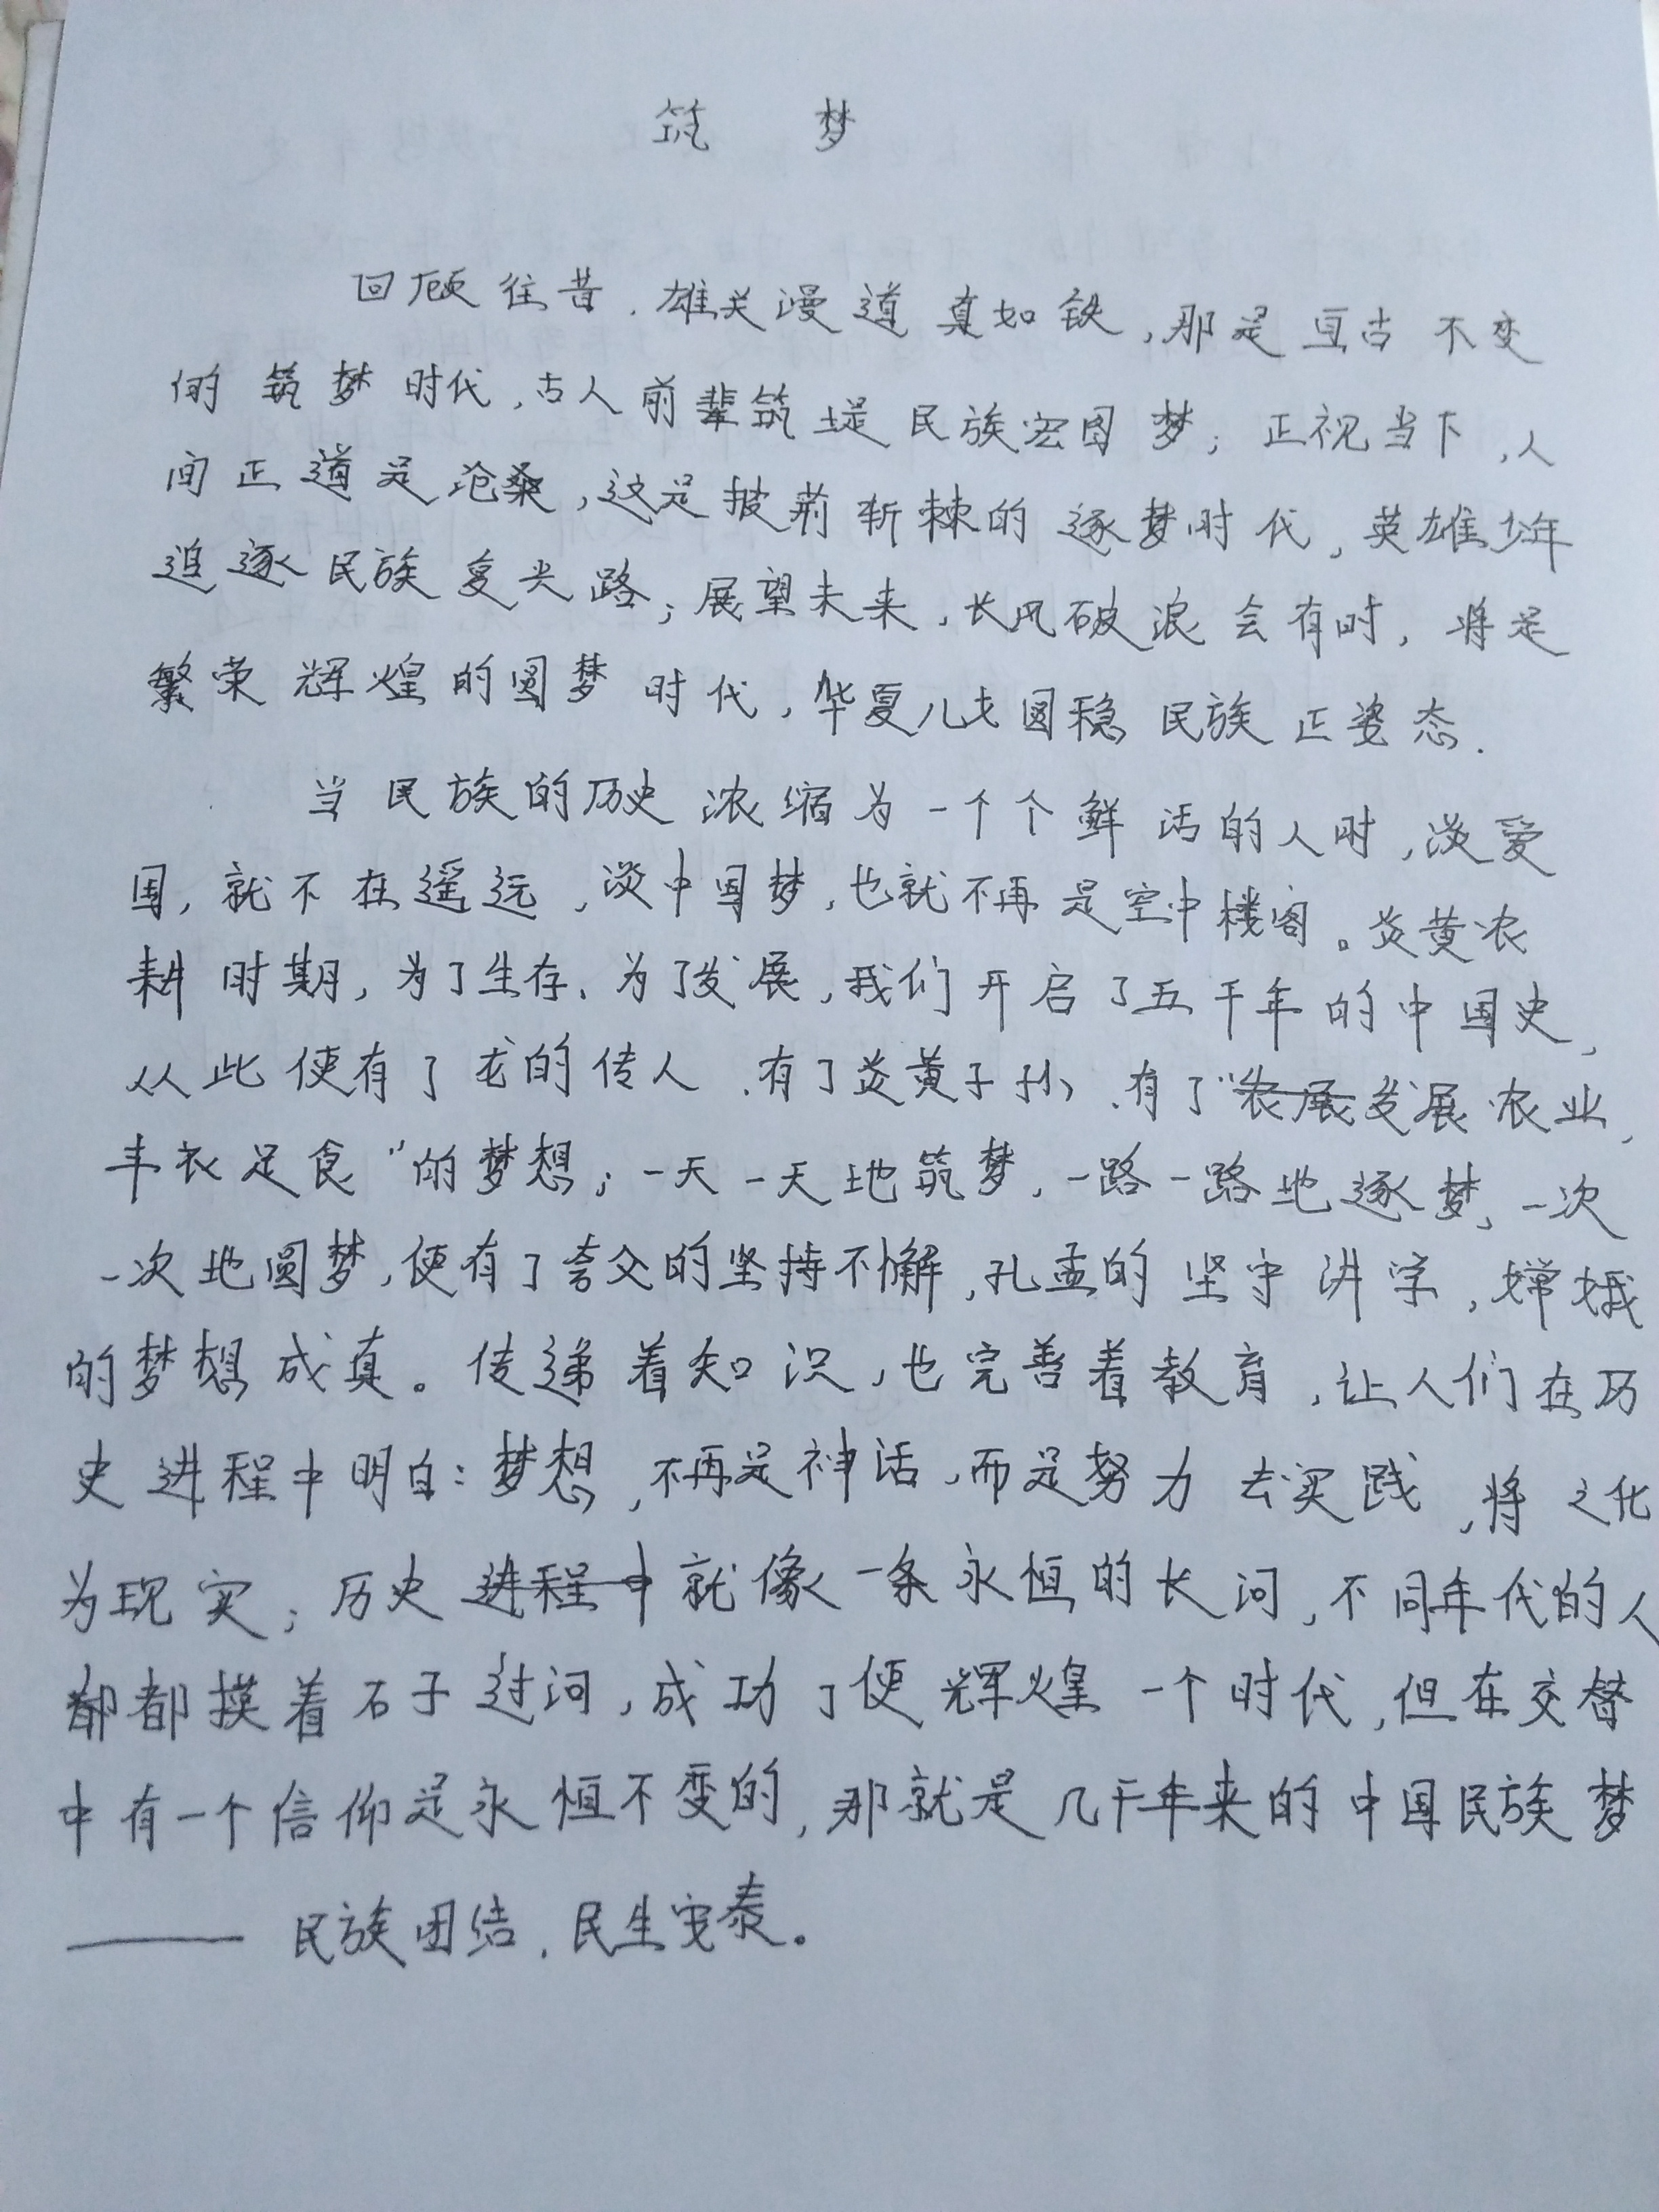 筑 梦
回顾往昔，雄关漫道真如铁，那是亘古不变
的筑梦时代，古人前辈筑堤民族宏图梦；正视当下，人
间正道是沧桑，这是披荆斩棘的逐梦时代，英雄少年
追逐民族复兴路；展望未来，长风破浪会有时，将是
繁荣辉煌的圆梦时代，华夏儿女圆稳民族正姿态．
当民族的历史浓缩为一个个鲜活的人时，谈爱
国，就不在遥远，谈中国梦，也就不再是空中楼阁。炎黄农
耕时期，为了生存、为了发展，我们开启了五千年的中国史，
从此便有了龙的传人、有了炎黄子孙、有了“发展农业，
丰衣足食”的梦想；一天一天地筑梦，一路一路地逐梦，一次
一次地圆梦，便有了夸父的坚持不懈，孔孟的坚守讲学，嫦娥
的梦想成真。传递着知识，也完善着教育，让人们在历
史进程中明白：梦想，不再是神话，而是努力去实践，将之化
为现实；历史就像一条永恒的长河，不同年代的人
都都摸着石子过河，成功了便辉煌一个时代，但在交替
中有一个信仰是永恒不变的，那就是几千年来的中国民族梦
——民族团结，民生安泰。